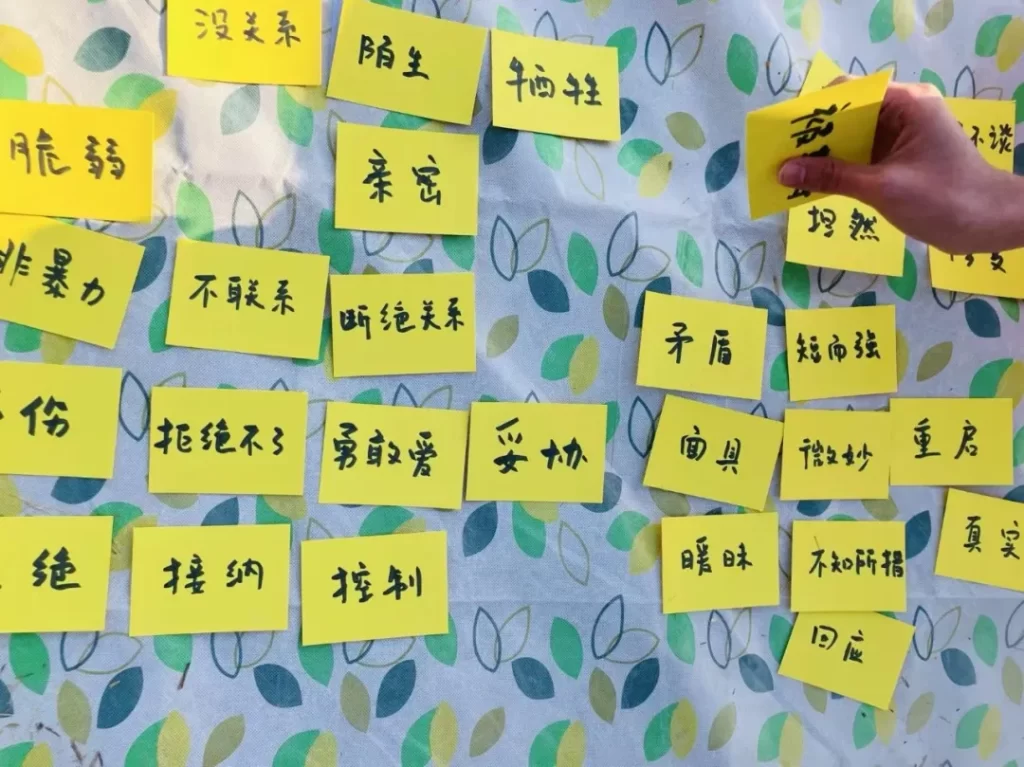 没关系
陌生
牺牲
脆弱
亲密
坦然
非暴力
不联系
断绝关系
矛盾
短而强
伤
拒绝不了
勇敢爱
妥协
面具
微妙
重启
绝
接纳
控制
暧昧
不知所措
真实
回应